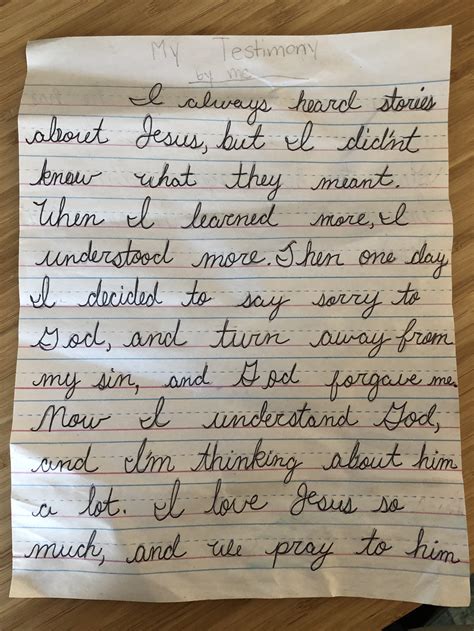 My Testimony
by me
I always heard stories
about Jesus, but I didn't
know what they meant.
When I learned more, I
understood more. Then one day
I decided to say sorry to
God, and turn away from
my sin, and God forgave me.
Now I understand God,
and I'm thinking about him
a lot. I love Jesus so
much, and we pray to him